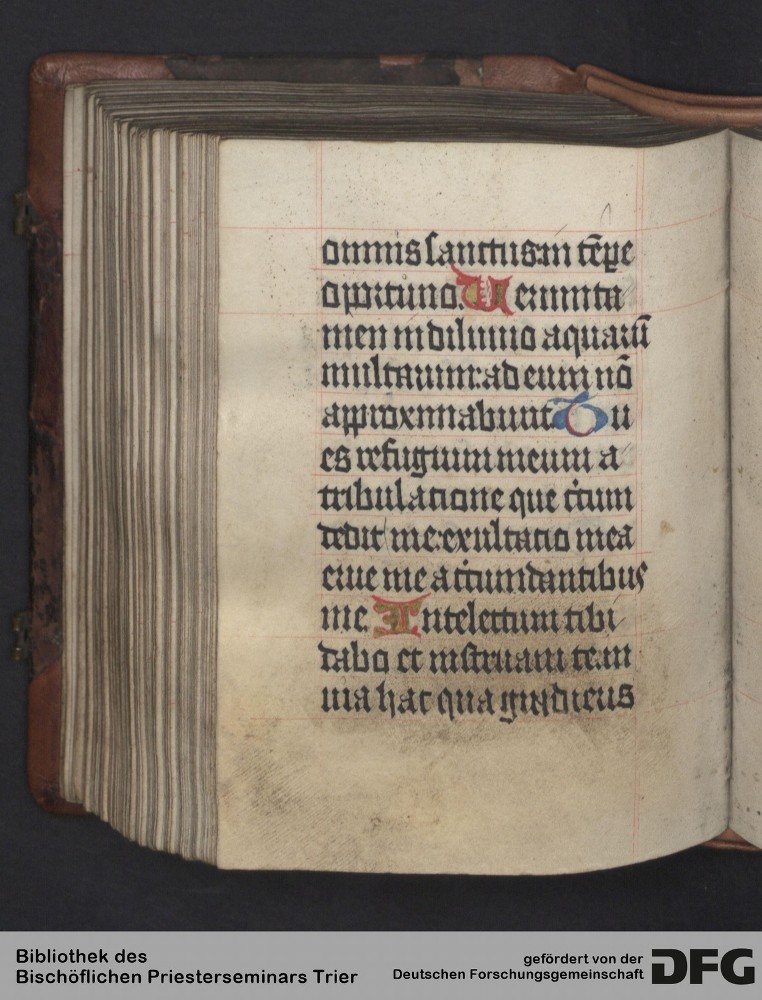 omnis sanctus in tēpe
oportuno. Verumta
men in diluuio aquarū
multarum: ad eum nō
approximabunt Tu
es refugium meum a
tribulatione que circum
dedit me: exultatio mea
erue me a circumdantibus
me. Intelectum tibi
dabo et instruam te: in
uia hac qua gradieris
Bibliothek des
Bischöflichen Priesterseminars Trier
gefördert von der
Deutschen Forschungsgemeinschaft
DFG